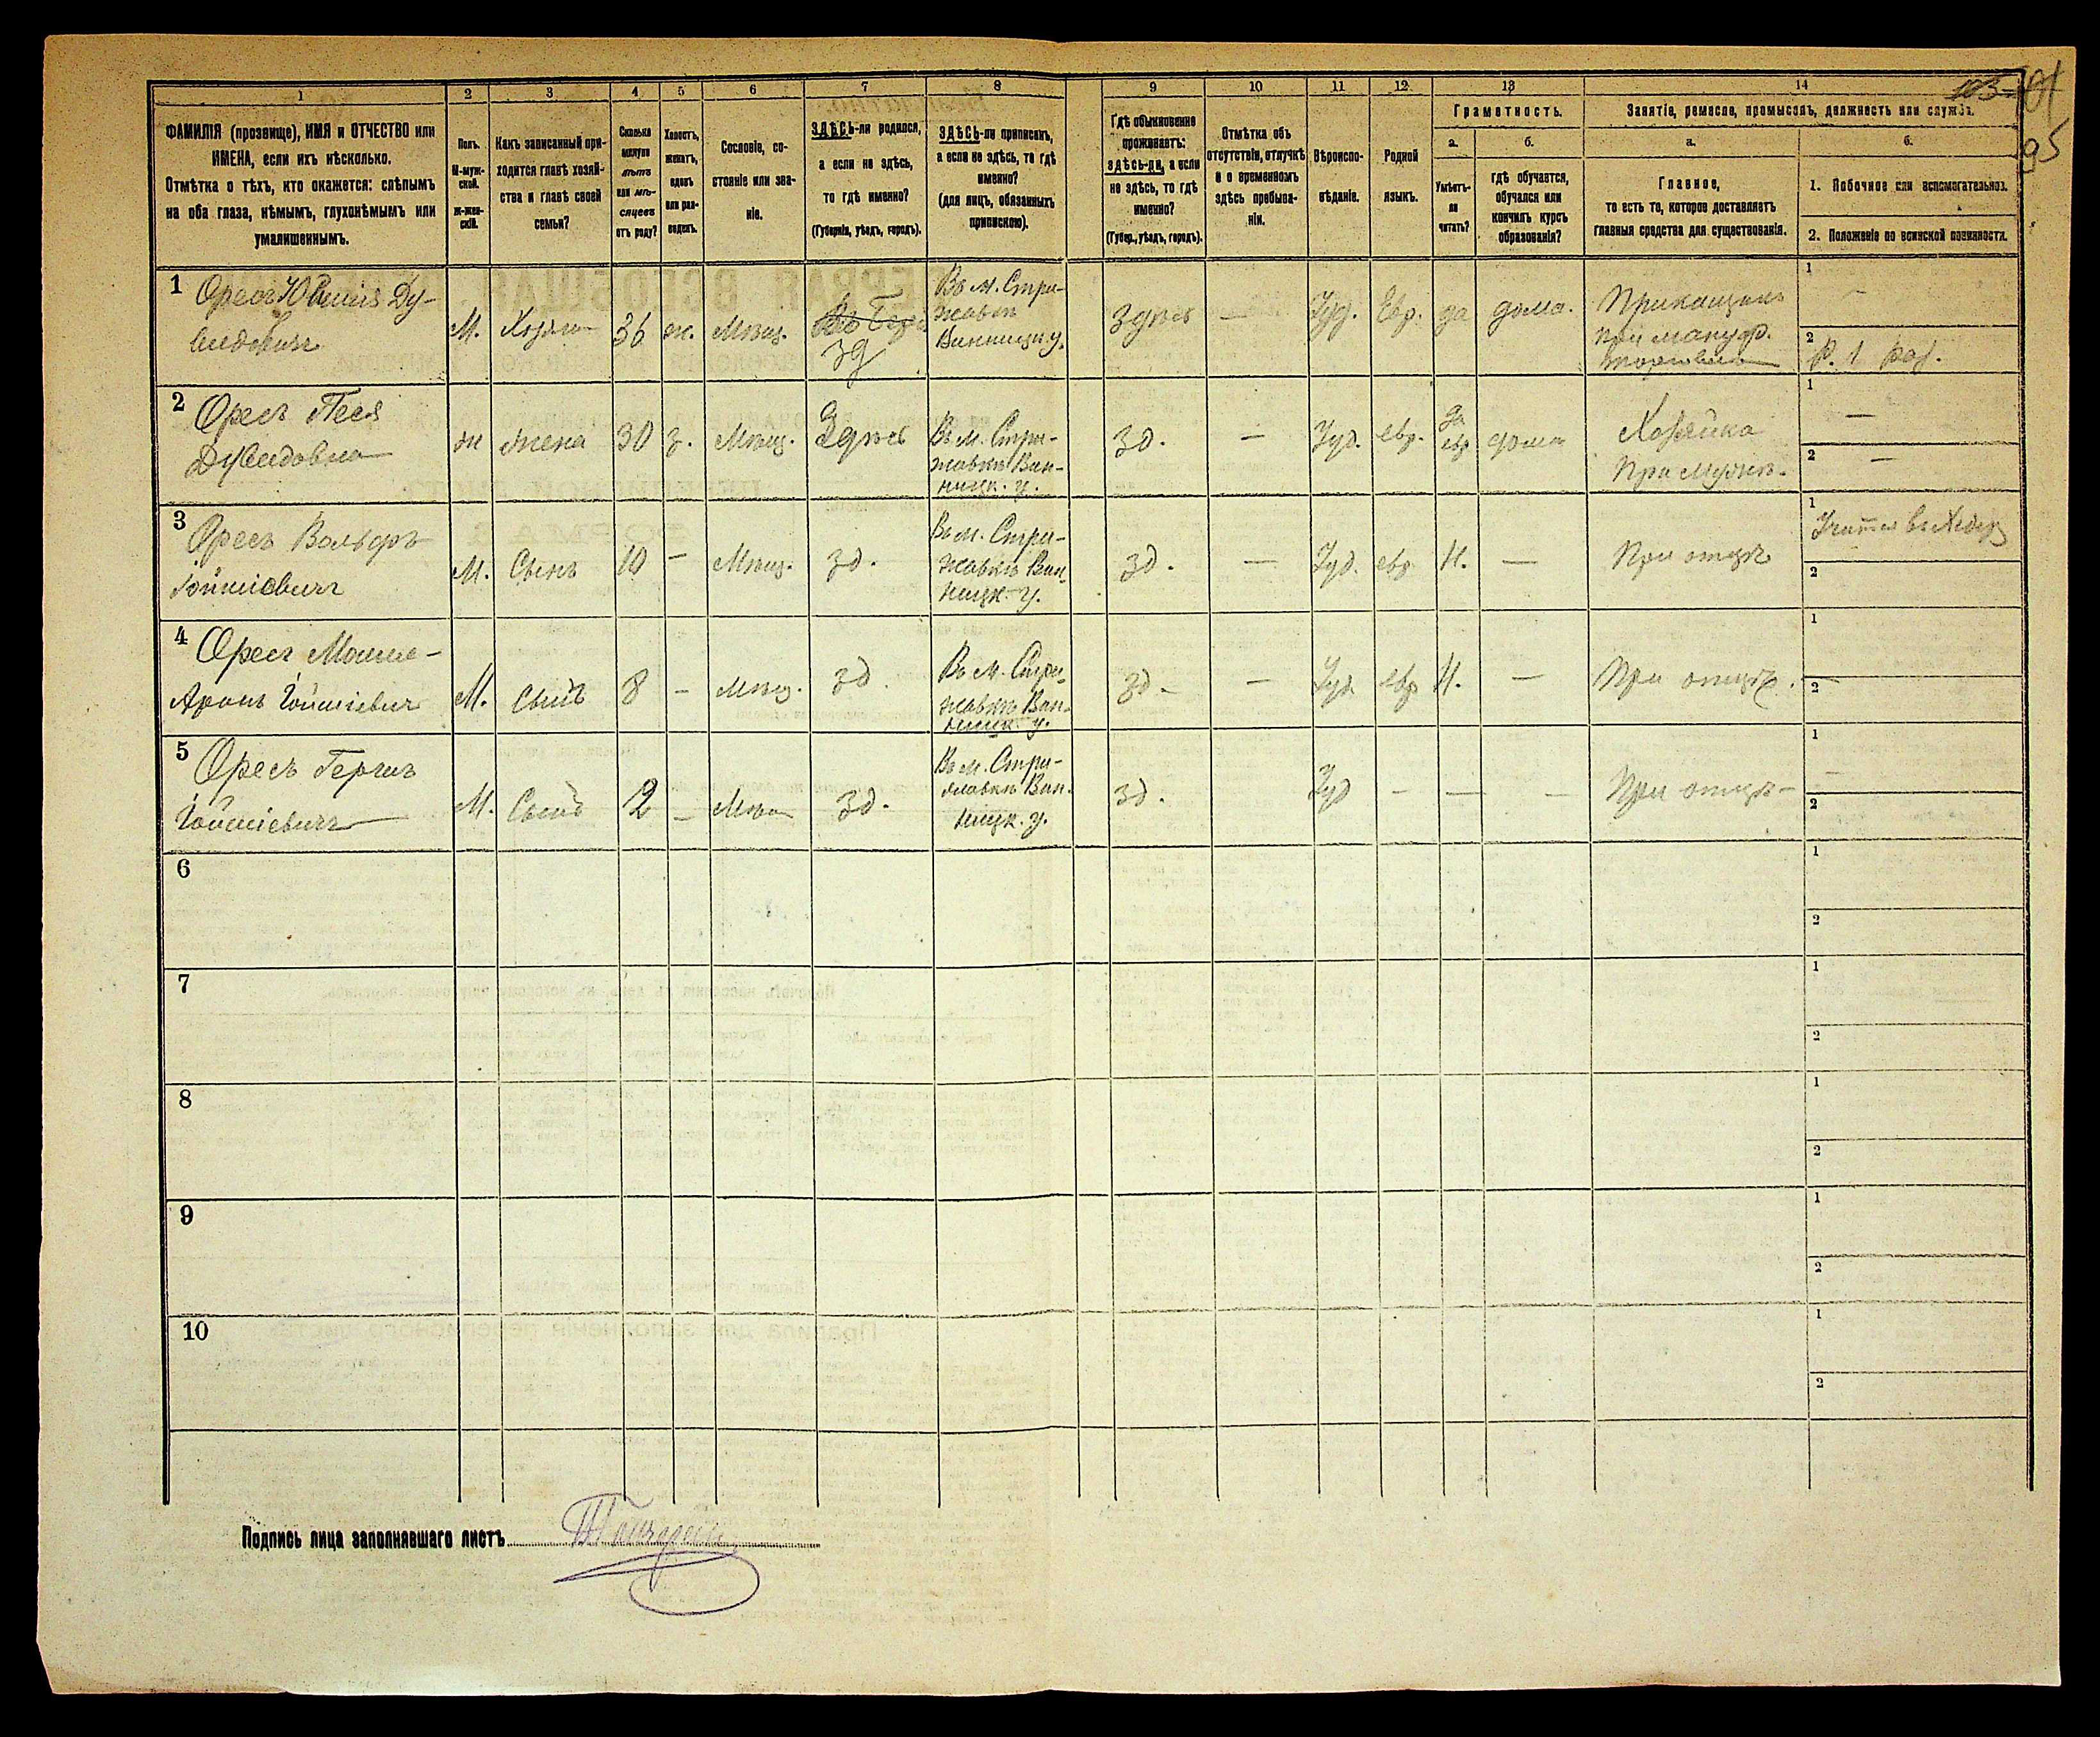 103
95
1
2
3
4
5
6
7
8
9
10
11
12
13
14
ФАМИЛІЯ (прозвище), ИМЯ и ОТЧЕСТВО или
ИМЕНА, если ихъ нѣсколько.
Отмѣтка о тѣхъ, кто окажется: слѣпымъ
на оба глаза, нѣмымъ, глухонѣмымъ или
умалишеннымъ.
Полъ.
М-муж-
ской.
Ж-жен-
скій.
Какъ записанный при-
ходится главѣ хозяй-
ства и главѣ своей
семьи?
Сколько
минуло
лѣтъ
или мѣ-
сяцевъ
отъ роду?
Холостъ,
женатъ,
вдовъ
или раз-
веденъ.
Сословіе, со-
стояніе или зва-
ніе.
ЗДѢСЬ-ли родился,
а если не здѣсь,
то гдѣ именно?
(Губернія, уѣздъ, городъ).
ЗДѢСЬ-ли приписанъ,
а если не здѣсь, то гдѣ
именно?
(для лицъ, обязанныхъ
припискою).
Гдѣ обыкновенно
проживаетъ:
здѣсь-ли, а если
не здѣсь, то гдѣ
именно?
(Губер., уѣздъ, городъ).
Отмѣтка объ
отсутствіи, отлучкѣ
и о временномъ
здѣсь пребыва-
ніи.
Вѣроиспо-
вѣданіе.
Родной
языкъ.
Грамотность.
а.
Умѣетъ-
ли
читать?
б.
гдѣ обучается,
обучался или
кончилъ курсъ
образованія?
Занятіе, ремесло, промыселъ, должность или служба.
а.
Главное,
то есть то, которое доставляетъ
главныя средства для существованія.
б.
1. Побочное или вспомогательное.
2. Положеніе по воинской повинности.
1
Оресъ Ду-
видовичъ
М.
Хозяинъ
36
ж.
Мѣщ.
зд
Въ м. Стри-
жавкѣ
Винницк. у.
Здѣсь
—
Іуд.
Евр.
да
дома.
Прикащикъ
при мануф.
торговлѣ
1
—
2
Р. 1 раз.
2
Оресъ Песя
Дувидовна
ж
жена
30
з.
Мѣщ.
Здѣсь
Въ м. Стри-
жавкѣ Вин-
ницк. у.
зд.
—
Іуд.
евр.
да
евр
дома
Хозяйка
При мужѣ.
1
—
2
—
3
Оресъ Вольфъ
Іойшіевичъ
М.
Сынъ
10
—
Мѣщ.
зд.
Въ м. Стри-
жавкѣ Вин-
ницк. у.
зд.
—
Іуд.
евр
Н.
—
При отцѣ
1
2
4
Оресъ Мошко-
Аронъ Іойшіевичъ
М.
Сынъ
8
—
мѣщ.
зд.
Въ м. Стри-
жавкѣ Вин-
ницк. у.
зд.
—
Іуд.
евр
Н.
—
При отцѣ.
1
2
5
Оресъ
Іойшіевичъ
М.
Сынъ
2
—
Мѣщ
зд.
Въ м. Стри-
жавкѣ Вин.
ницк. у.
зд.
Іуд
—
—
—
При отцѣ
1
—
2
6
1
2
7
1
2
8
1
2
9
1
2
10
1
2
Подпись лица заполнявшаго листъ